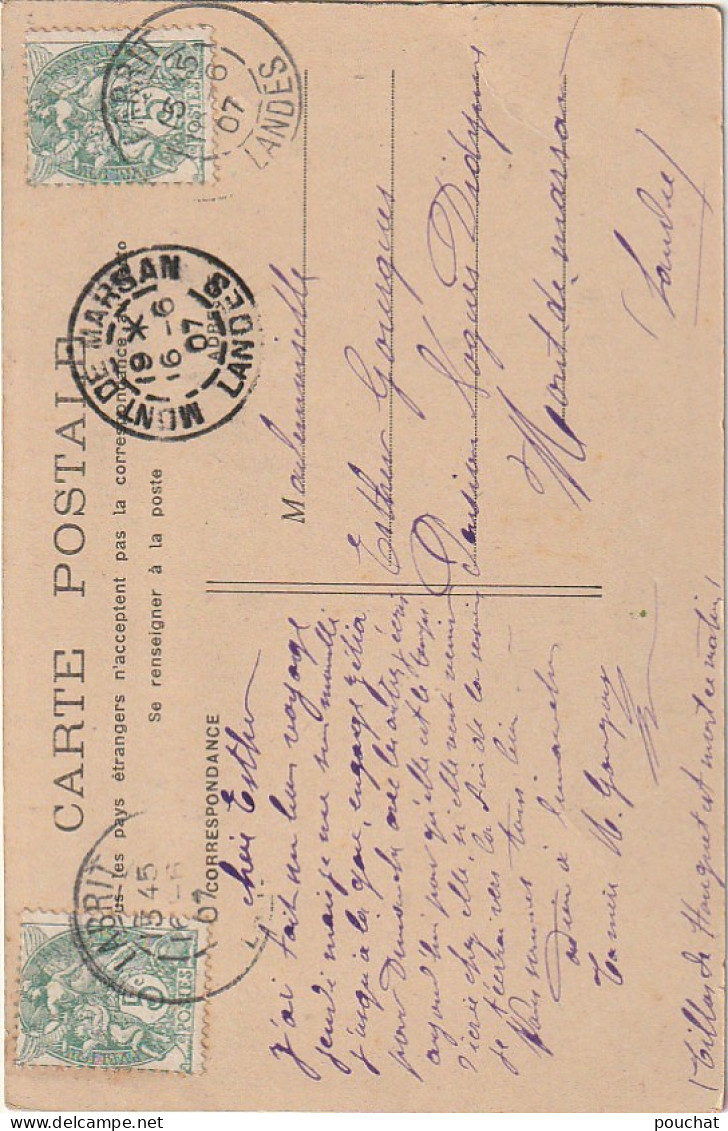 CARTE POSTALE
us les pays étrangers n'acceptent pas la correspondance
Se renseigner à la poste
CORRESPONDANCE
ADRES
LABRIT
15 45
07
LABRIT
LANDES
07
MONT DE MARSAN
19 *
6 - 6
07
LANDES
5c
POSTES
5c
POSTES
chère Esther
J'ai fait un bon voyage
jeudi mais je me suis mouillé
jusqu'à la gare, engage Zélia
pour Dimanche avec les autres j'écris
aujourd'hui pour qu'elle est le temps
d'écrire chez elle, si elle veut venir
je t'écrirai vers la fin de la semaine
Nous sommes tous bien
adieu à dimanche
M. Gourgues
est mort ce matin
Mademoiselle
Esther Gourgues
Pension
Mont de marsan
(Landes)
pouchat